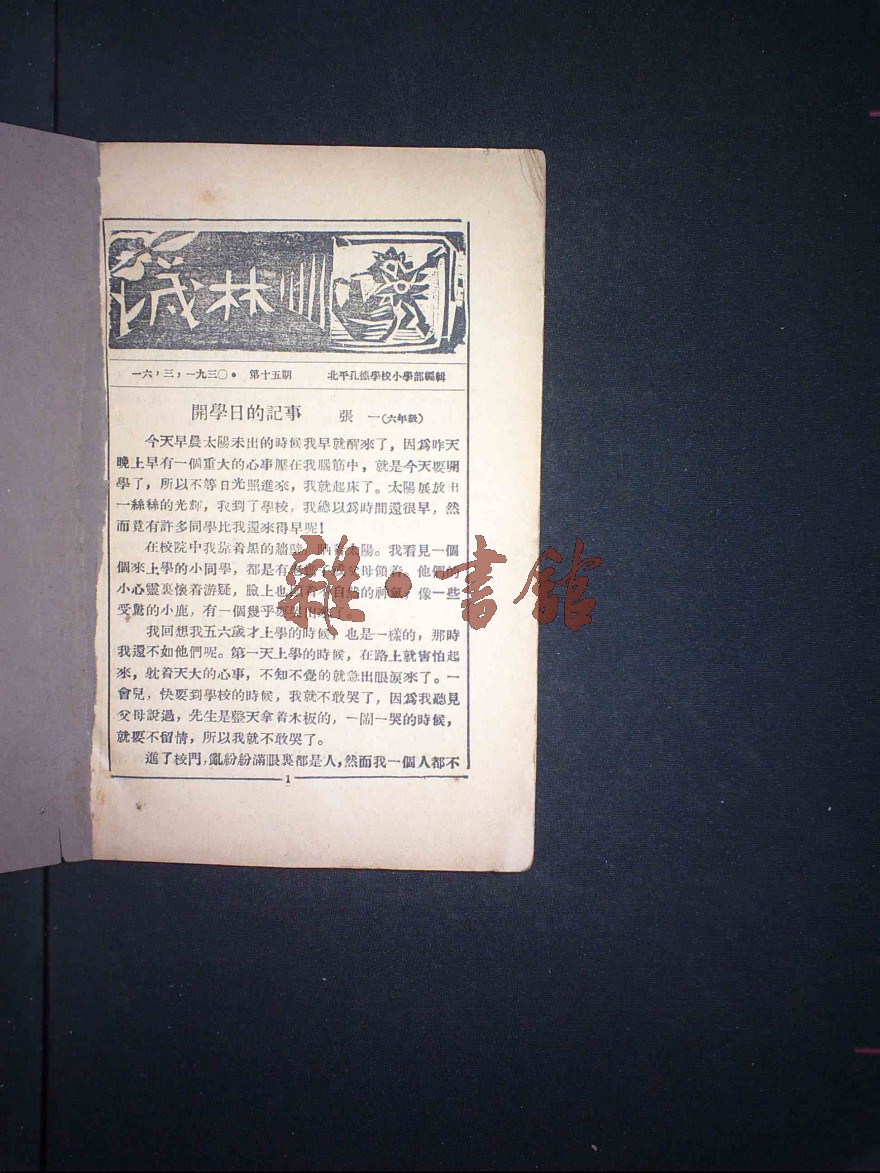 一六，三，一九三〇。 第十五期 北平孔德學校小學部編輯
開學日的記事 張 一（六年級）
今天早晨太陽未出的時候我早就醒來了，因爲昨天
晚上早有一個重大的心事壓在我腦筋中，就是今天要開
學了，所以不等日光照進來，我就起床了。太陽展放出
一絲絲的光輝，我到了學校，我總以爲時間還很早，然
而竟有許多同學比我還來得早呢！
在校院中我靠着黑的牆 太陽。我看見一個
個來上學的小同學，都是有 父母領着，他們的
小心靈裏懷着游疑，臉上也 自然的神氣，像一些
受驚的小鹿，有一個幾乎要哭出來了。
我回想我五六歲才上學的時候，也是一樣的，那時
我還不如他們呢。第一天上學的時候，在路上就害怕起
來，躭着天大的心事，不知不覺的就急出眼淚來了。一
會兒，快要到學校的時候，我就不敢哭了，因爲我聽見
父母說過，先生是整天拿着木板的，一鬧一哭的時候，
就要不留情，所以我就不敢哭了。
進了校門，亂紛紛滿眼裏都是人，然而我一個人都不
1
雜·書館